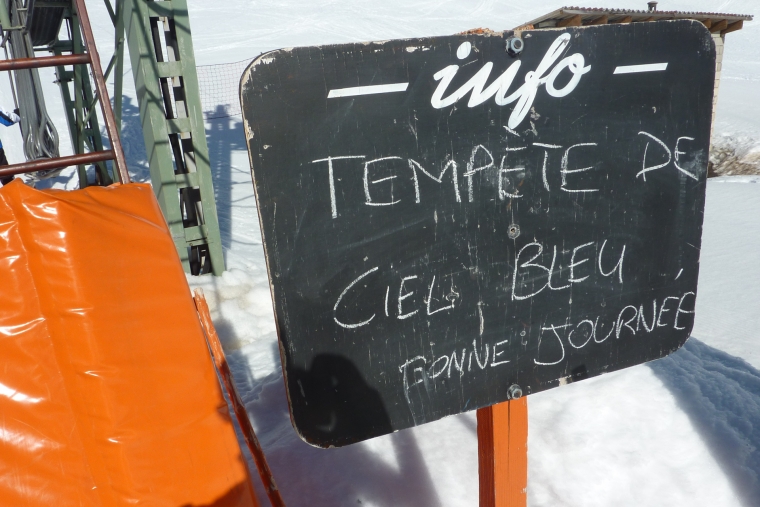 — info —
TEMPÊTE DE
CIEL BLEU
BONNE JOURNÉE